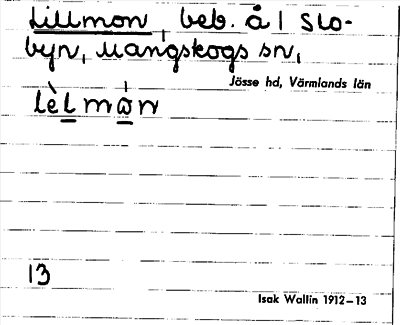 Lillmon, beb. å 1 Slo-
byn, Mangskogs sn,
Jösse hd, Värmlands län
lèlmòn
13
Isak Wallin 1912–13